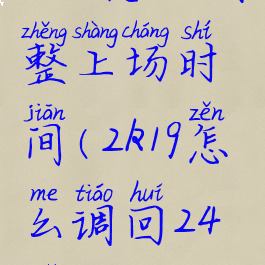 zhěng shàng cháng shí
整上场时
jiān zěn
间(2k19怎
me tiáo huí
么调回24